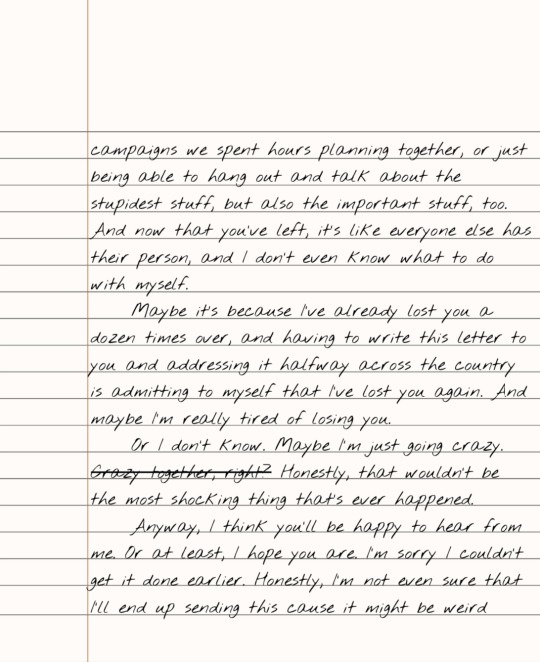 campaigns we spent hours planning together, or just
being able to hang out and talk about the
stupidest stuff, but also the important stuff, too.
And now that you've left, it's like everyone else has
their person, and I don't even know what to do
with myself.
Maybe it's because I've already lost you a
dozen times over, and having to write this letter to
you and addressing it halfway across the country
is admitting to myself that I've lost you again. And
maybe I'm really tired of losing you.
Or I don't know. Maybe I'm just going crazy.
Crazy together, right? Honestly, that wouldn't be
the most shocking thing that's ever happened.
Anyway, I think you'll be happy to hear from
me. Or at least, I hope you are. I'm sorry I couldn't
get it done earlier. Honestly, I'm not even sure that
I'll end up sending this cause it might be weird